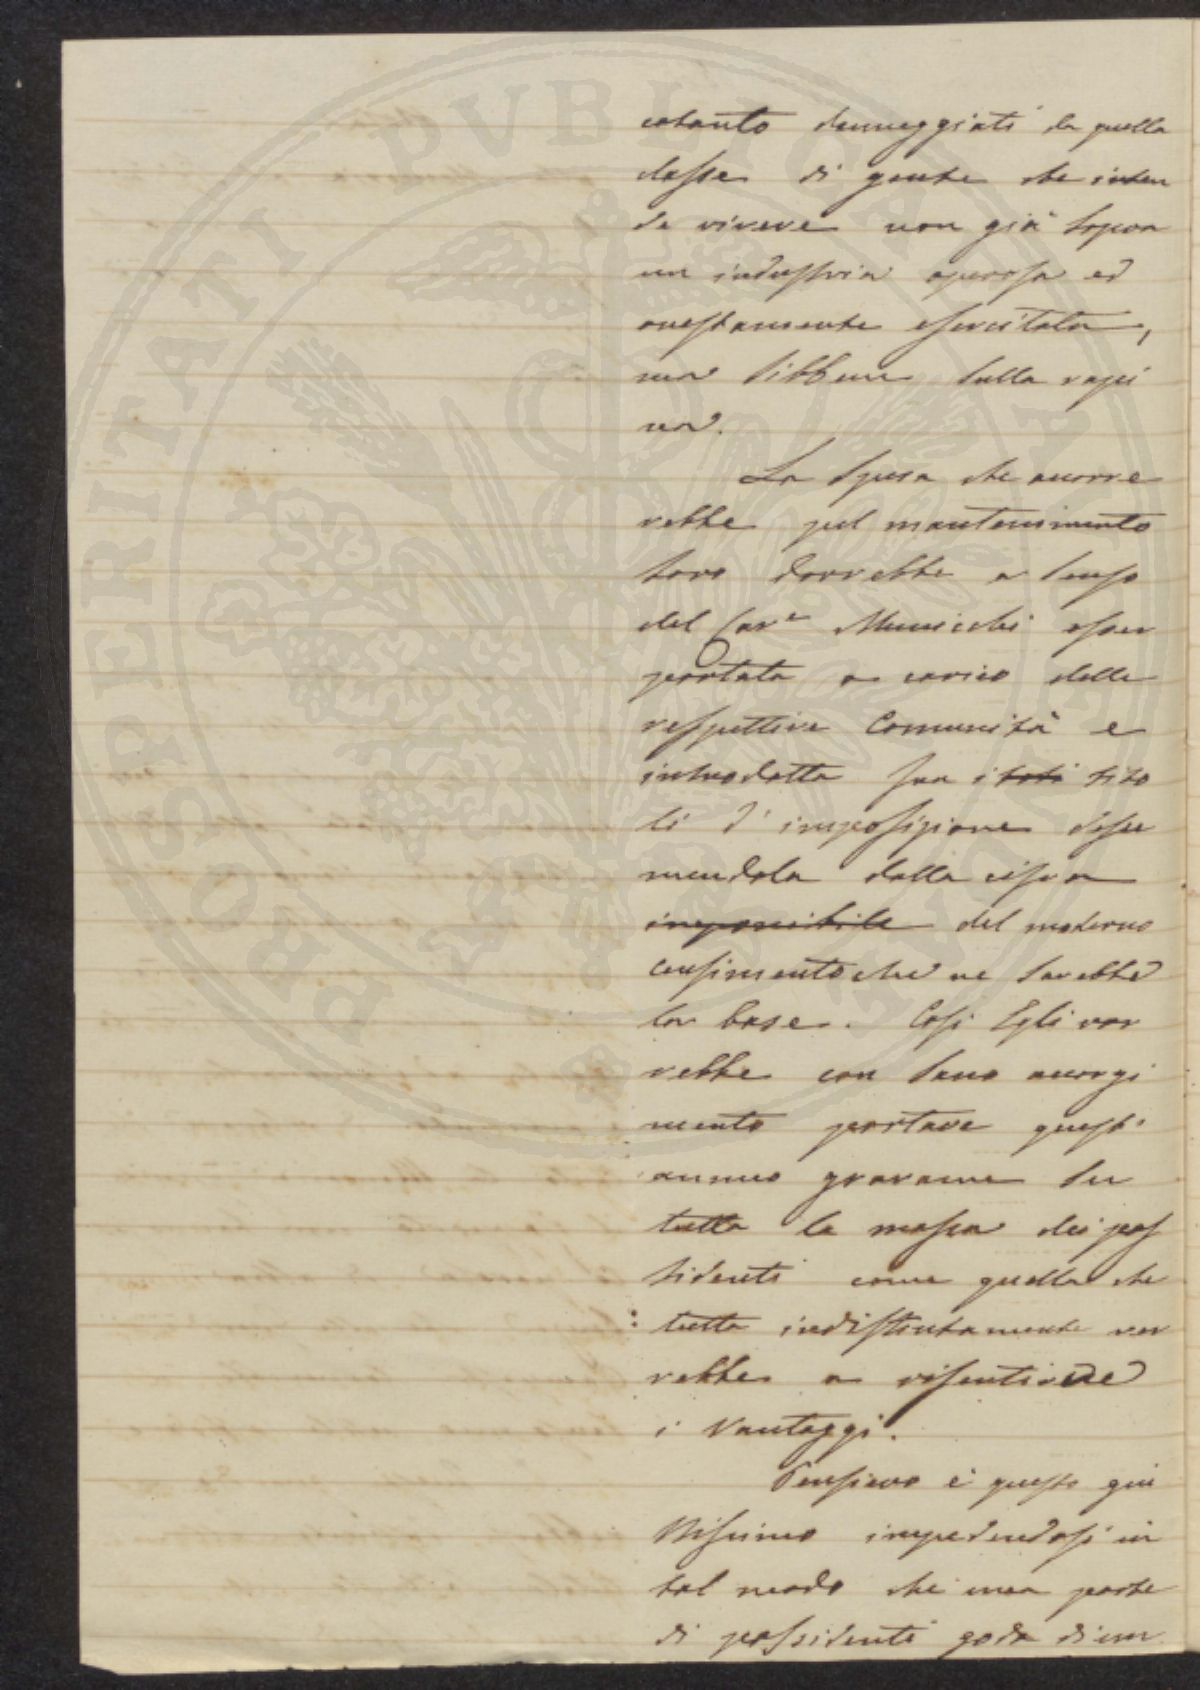 cotanto danneggiati da quella
classe di gente che inten
de vivere non già sopra
un industria operosa ed
onestamente esercitata,
ma sibbene sulla rapi
na.
La spesa che accorre
rebbe pel mantenimento
loro dovrebbe a senso
del Cav.e Municchi esser
portata a carico delle
respettive Comunità e
introdotta fra i toti tito
li d'imposizione desu
mendola dalla cifra
imponibile del moderno
censimento che ne sarebbe
la base. Così Egli vor
rebbe con sano accorgi
mento portare questi
annuo gravame su
tutta la massa dei pos
sidenti come quella che
tutta indistintamente ver
rebbe a risentirne
i vantaggi.
Pensiero è questo giu
stissimo impedendosi in
tal modo che una parte
di possidenti goda di un
PROSPERITATI PVBLICAE